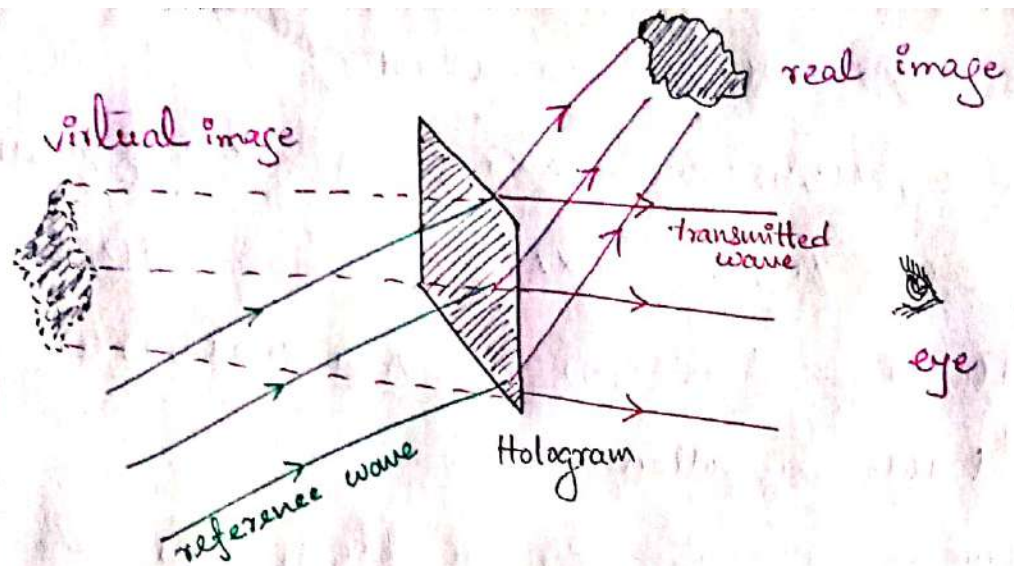 real image
virtual image
transmitted
wave
eye
Hologram
reference wave